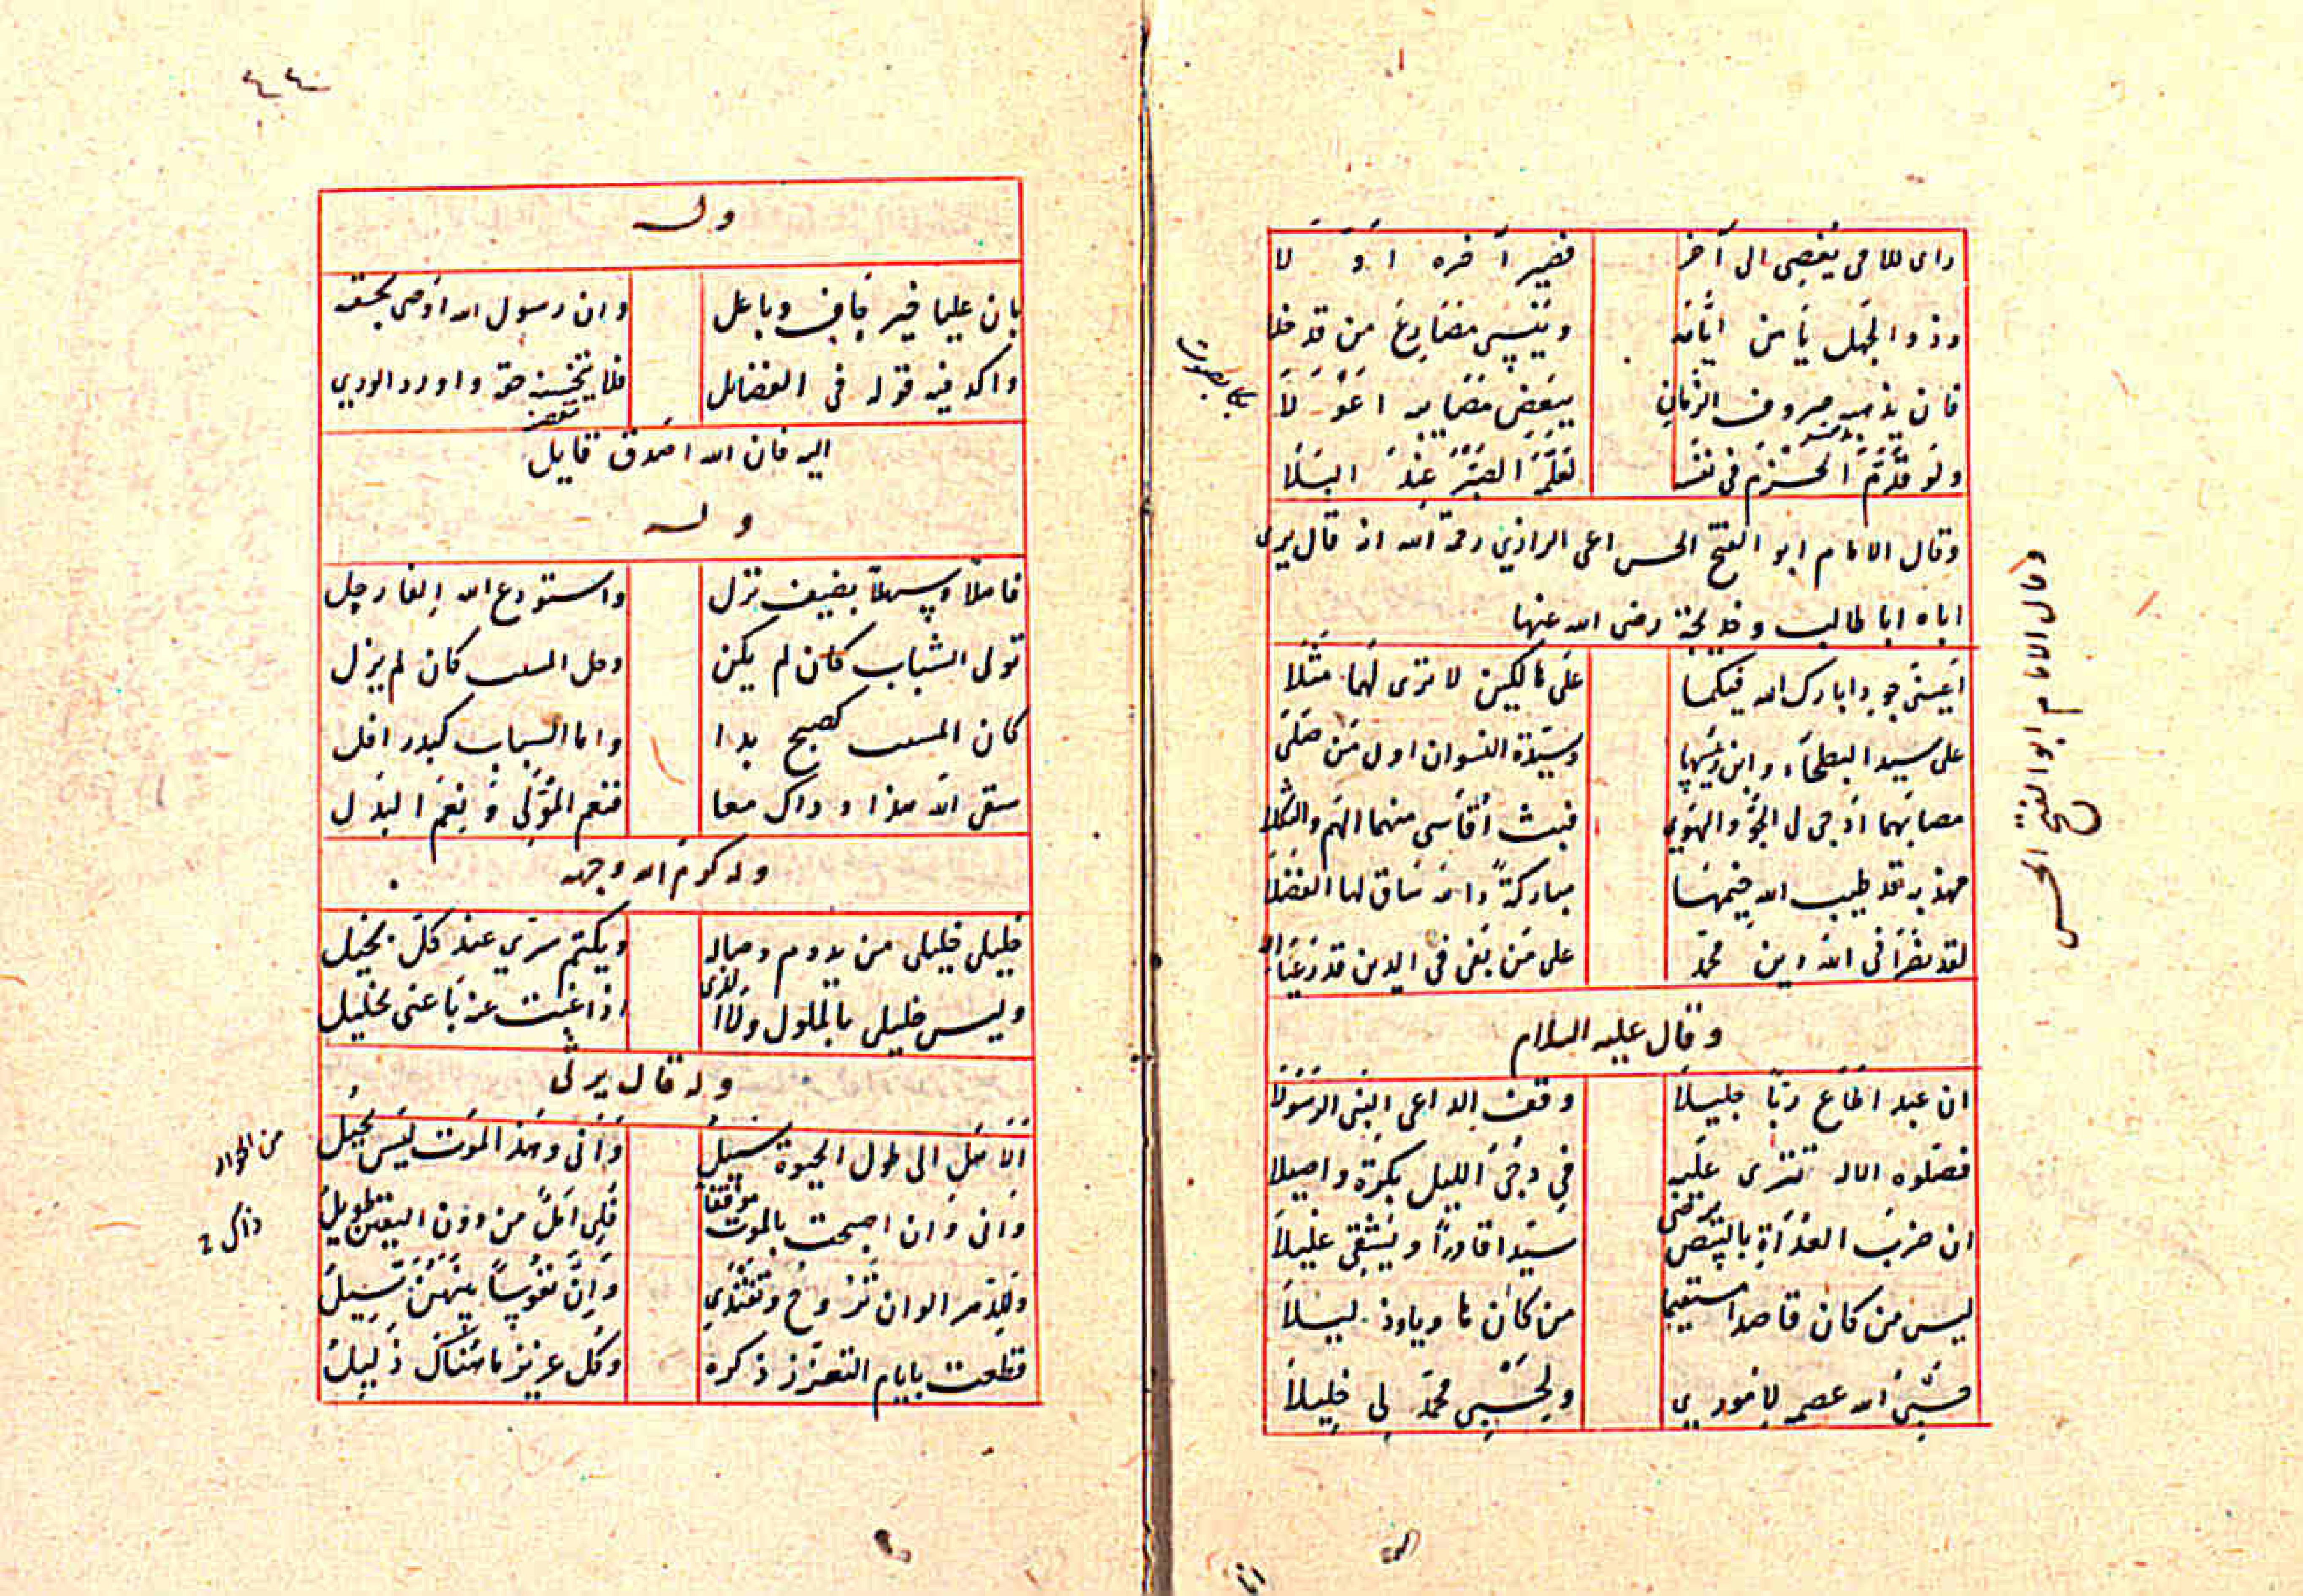 رای للامر یفضی الی آخر فصیر آخره اوّلا
وذو الجهل یامن ایامه وینسی مصارع من قد خلا
فان بدهته صروف الزمان ببعض مصایبه اعولا
ولو قدّم الحزم فی نفسه لعلّمه الصبر عند البلا
وقال الامام ابو الفتح الحسن اعی الرازی رحمة الله انه قال یرثی
اباه ابا طالب وخدیجة رضی الله عنها
اعینیّ جودا بارک الله فیکما علی هالکین لا تری لهما مثلا
علی سید البطحاء وابن رئیسها وسیّدة النسوان اول من صلّی
مصابهما ادجی لی الجوّ والهوی فبت اقاسی منهما الهم والثکلا
مهذبه قد طیب الله خیمها مبارکةً والله ساق لها الفضلا
لقد نصرا فی الله دین محمد علی من بغی فی الدین قد رعیا الا
وقال علیه السلام
ان عبد اطاع ربّا جلیلاً وقف الداعی النبی الرسولا
فصلوه الاله تتری علیه فی دجی اللیل بکرة واصیلا
ان ضرب العداة بالسیف یرضی سیّدا قادراً ویشفی غلیلاً
لیس من کان قاصدا مستقیما من کان هاویا وذلیلاً
حسبی الله عصمة لاموری ولحسبی محمّد لی خلیلاً
وقال الامام ابو الفتح الحسن
وله
بان علیا خیر حاف وناعل وان رسول الله اوصی بحقه
واکد فیه قوله فی الفضائل فلا تبخسنه حقه واورد الوری
الیه فان الله اصدق قایل
وله
فاهلاً وسهلاً بضیف نزل واستودع الله الفا رحل
تولی الشباب کان لم یکن وحل المشیب کان لم یزل
کان المشیب کصبح بدا واما الشباب کبدر افل
سقی الله هذا وذاک معا فنعم المولّی ونعم البدل
وله کرّم الله وجهه
خلیلی خلیلی من یدوم وصاله ویکتم سرّی عند کلّ بخیل
ولیس خلیلی بالملول ولا الذی اذا غبت عنه باعنی بخلیل
وله قال یرثی
الا هل الی طول الحیوة سبیل وانی وهذ الموت لیس یحیل
وانی وان اصبحت بالموت موقنا فلی املٌ من دون الیقین طویل
وللدهر الوان تروح وتغتدی وانّ نفوساً بینهنّ تسیل
قطعت بایام التعزز ذکره وکل عزیز ما هناک ذلیل
٤٤٠